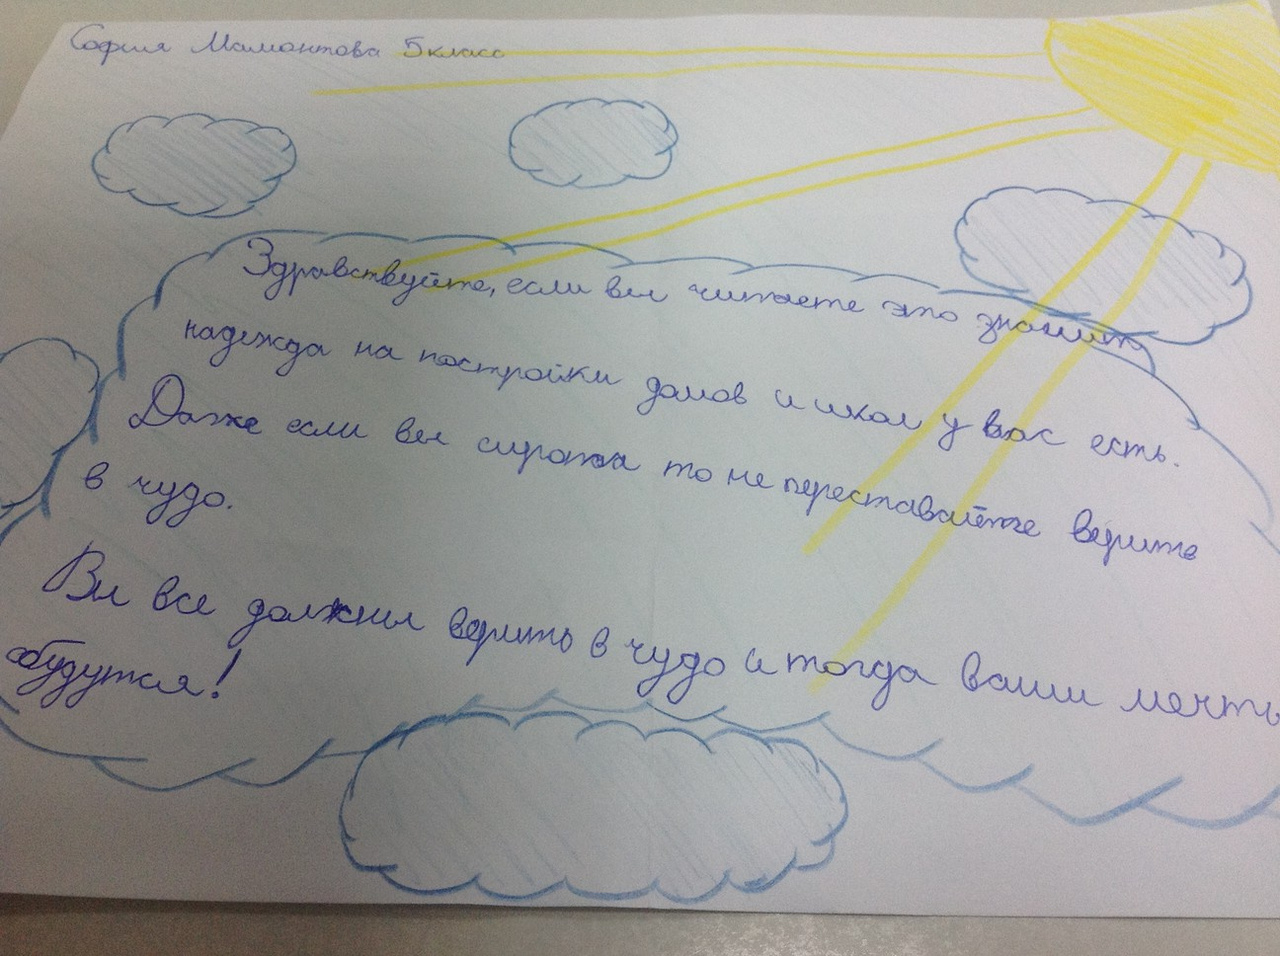 София Мамонтова 5 класс
Здравствуйте, если вы читаете это значит
надежда на постройки домов и школ у вас есть.
Даже если вы сирота то не переставайте верить
в чудо.
Вы все должны верить в чудо и тогда ваши мечты
сбудутся!